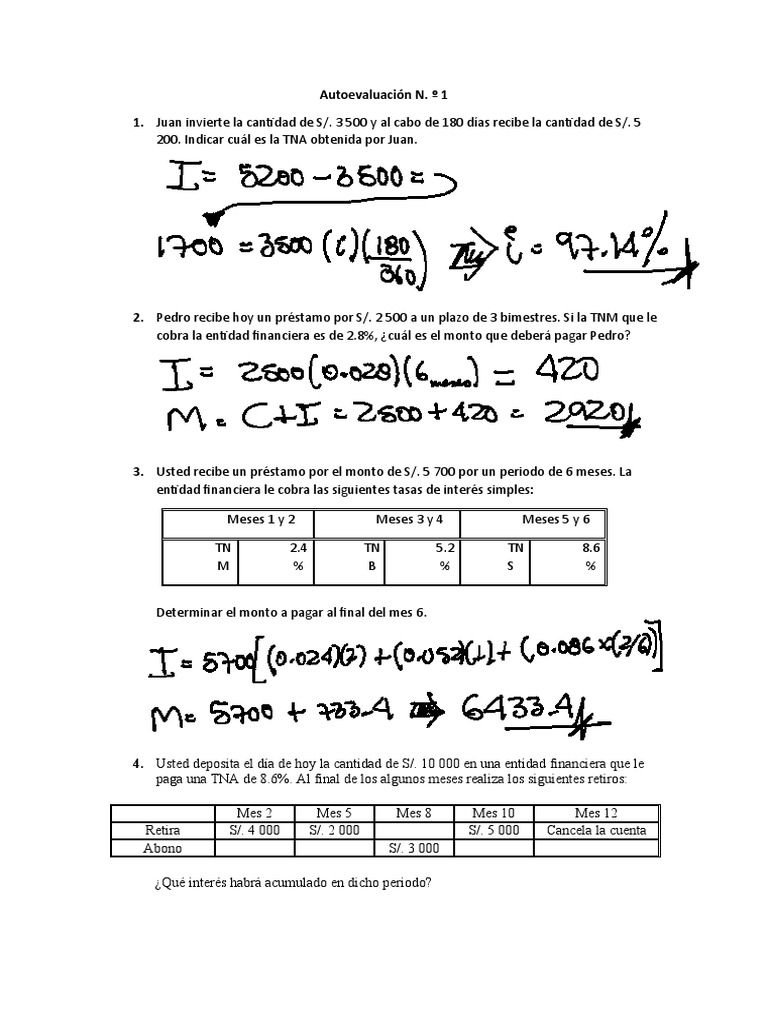 Autoevaluación N. º 1
1. Juan invierte la cantidad de S/. 3 500 y al cabo de 180 días recibe la cantidad de S/. 5
200. Indicar cuál es la TNA obtenida por Juan.
I = 5200 - 3500 =
1700 = 3500 (i)(180/360) i = 97.14%
2. Pedro recibe hoy un préstamo por S/. 2 500 a un plazo de 3 bimestres. Si la TNM que le
cobra la entidad financiera es de 2.8%, ¿cuál es el monto que deberá pagar Pedro?
I = 2500(0.028)(6 meses) = 420
M = C+I = 2500 + 420 = 2920
3. Usted recibe un préstamo por el monto de S/. 5 700 por un periodo de 6 meses. La
entidad financiera le cobra las siguientes tasas de interés simples:
Meses 1 y 2 Meses 3 y 4 Meses 5 y 6
TN 2.4 TN 5.2 TN 8.6
M % B % S %
Determinar el monto a pagar al final del mes 6.
I = 5700[(0.024)(2) + (0.052)(1) + (0.086 x (2/6)]
M = 5700 + 733.4 ⇒ 6433.4
4. Usted deposita el día de hoy la cantidad de S/. 10 000 en una entidad financiera que le
paga una TNA de 8.6%. Al final de los algunos meses realiza los siguientes retiros:
Mes 2 Mes 5 Mes 8 Mes 10 Mes 12
Retira S/. 4 000 S/. 2 000 S/. 5 000 Cancela la cuenta
Abono S/. 3 000
¿Qué interés habrá acumulado en dicho periodo?